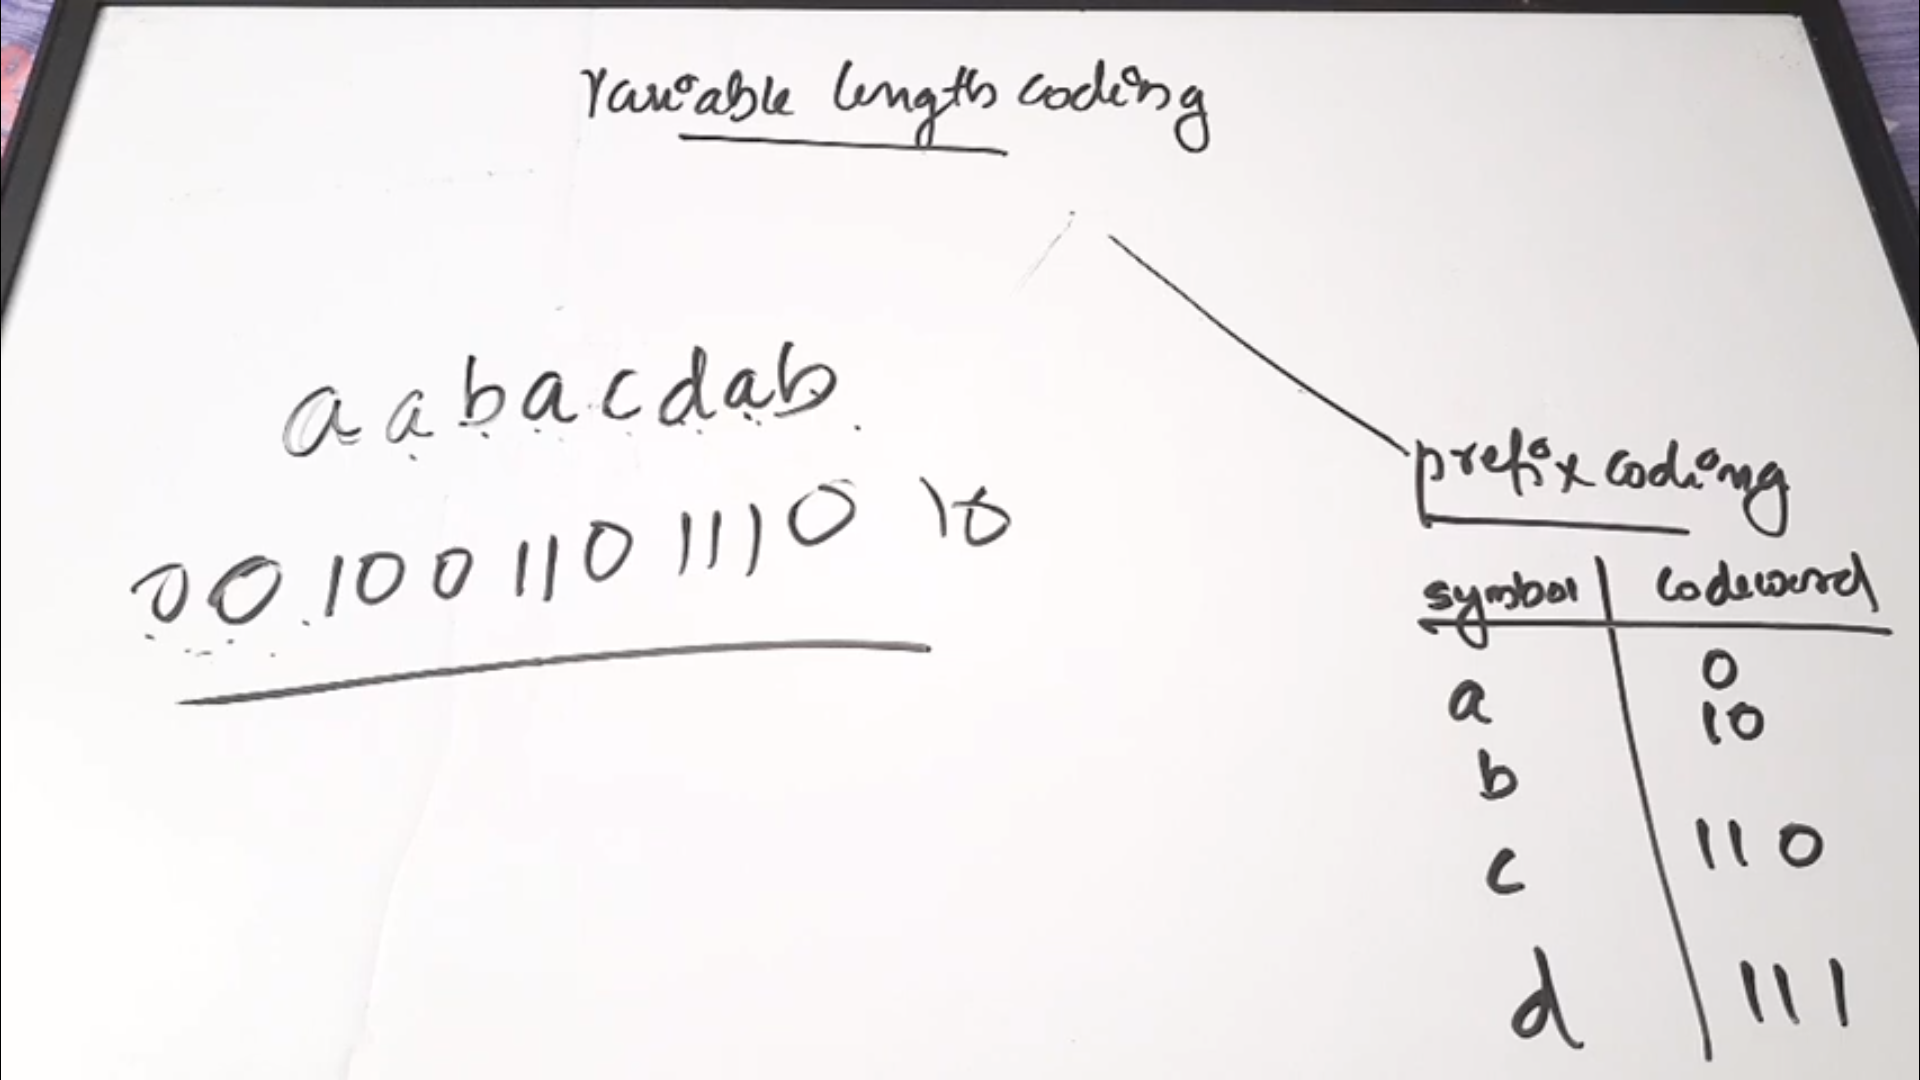 Variable length coding
a a b a c d a b
0 0 1 0 0 1 1 0 1 1 1 0 1 0
prefix coding
symbol codeword
a 0
b 10
c 110
d 111